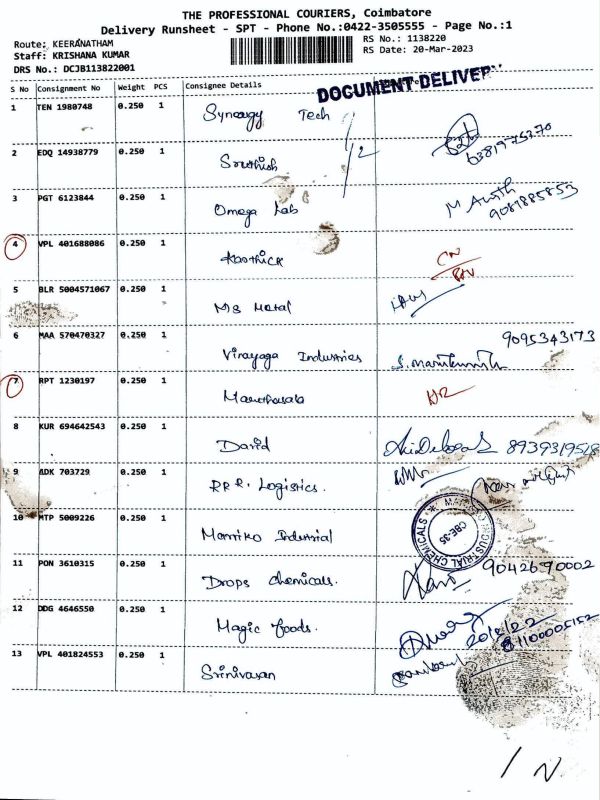 THE PROFESSIONAL COURIERS, Coimbatore
Delivery Runsheet - SPT - Phone No.:0422-3505555 - Page No.:1
Route: KEERANATHAM
Staff: KRISHANA KUMAR
DRS No.: DCJB113822001
RS No.: 1138220
RS Date: 20-Mar-2023
S No Consignment No Weight PCS Consignee Details
DOCUMENT DELIVERY
1 TEN 1980748 0.250 1 Synergy Tech
2 EDQ 14938779 0.250 1 6381975370
3 PGT 6123844 0.250 1 Omega Lab 9087885853
4 VPL 401688086 0.250 1
5 BLR 5004571067 0.250 1 MS Metal
6 MAA 570470327 0.250 1 Vinayaga Industries 9095343173
7 RPT 1230197 0.250 1
8 KUR 694642543 0.250 1 David
9 ADK 703729 0.250 1 RRR. Logistics.
10 MTP 5009226 0.250 1 Industrial
INDUSTRIAL CHEMICALS
CBE-35
11 PON 3610315 0.250 1 Drops chemicals. 9042670002
12 DDG 4646550 0.250 1 Magic foods.
13 VPL 401824553 0.250 1 Srinivasan